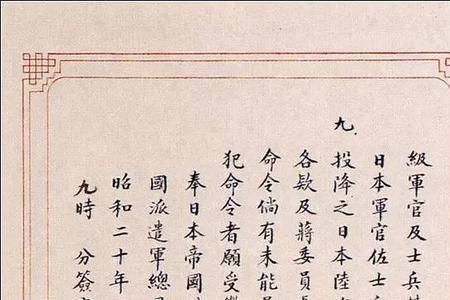 級軍官及士兵
日本軍官佐士
九投降之日本陸
各欵及蔣委員
命令倘有未能
犯命令者願受
奉日本帝國
國派遣軍總
昭和二十年
九時 分簽